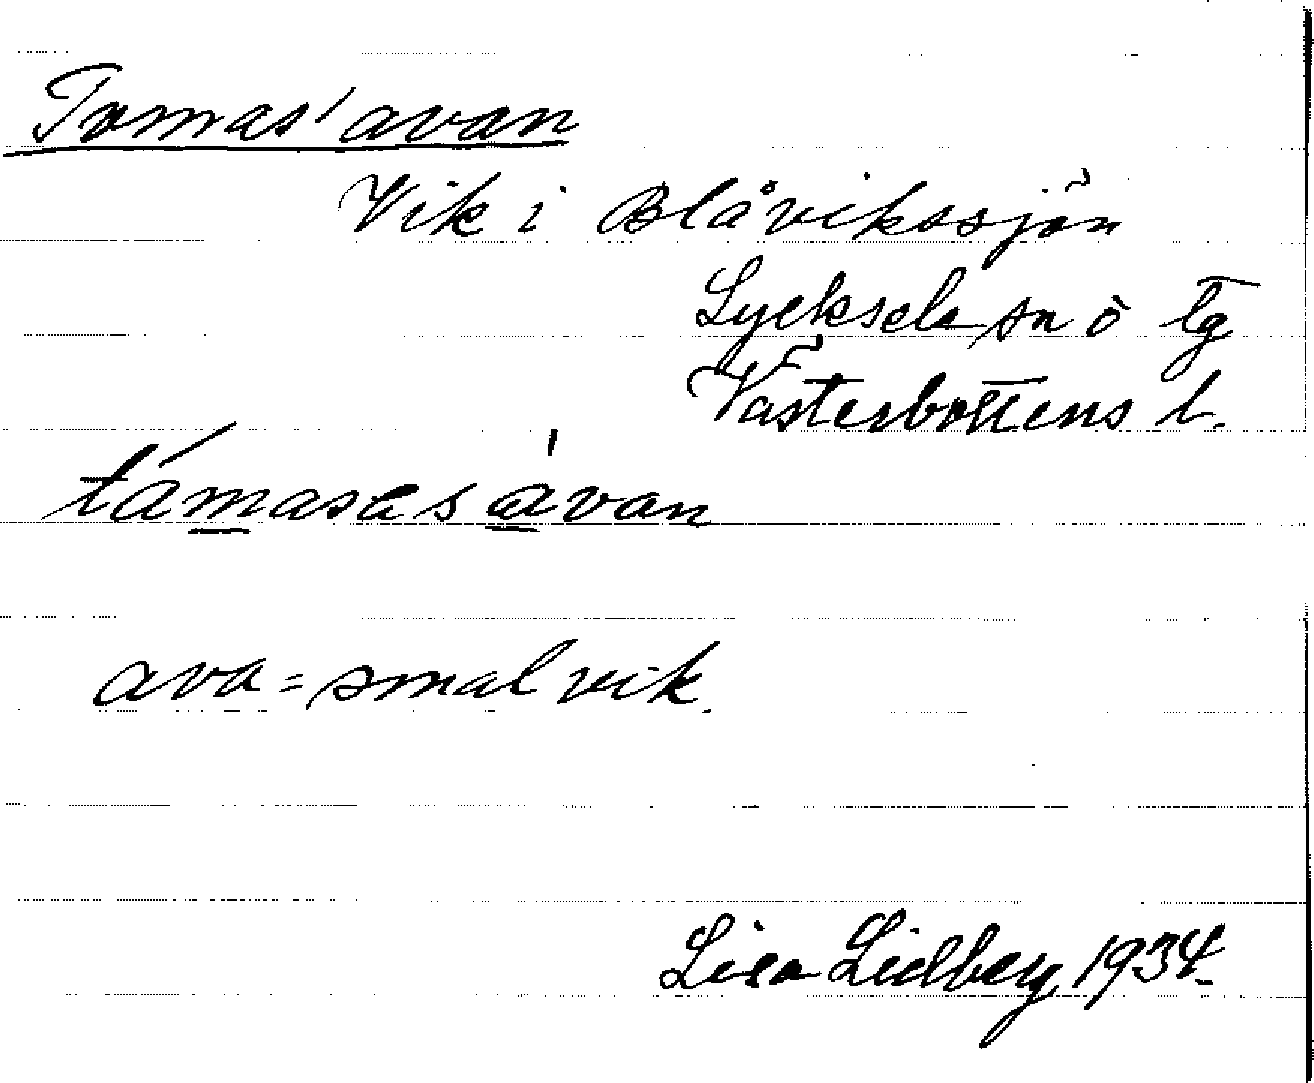 Tomas' avan
Vik i Blåvikssjön
Lycksele sn o lg
Västerbottens l.
támasas ávan
ava = smal vik.
Lisa Lidberg 1934.